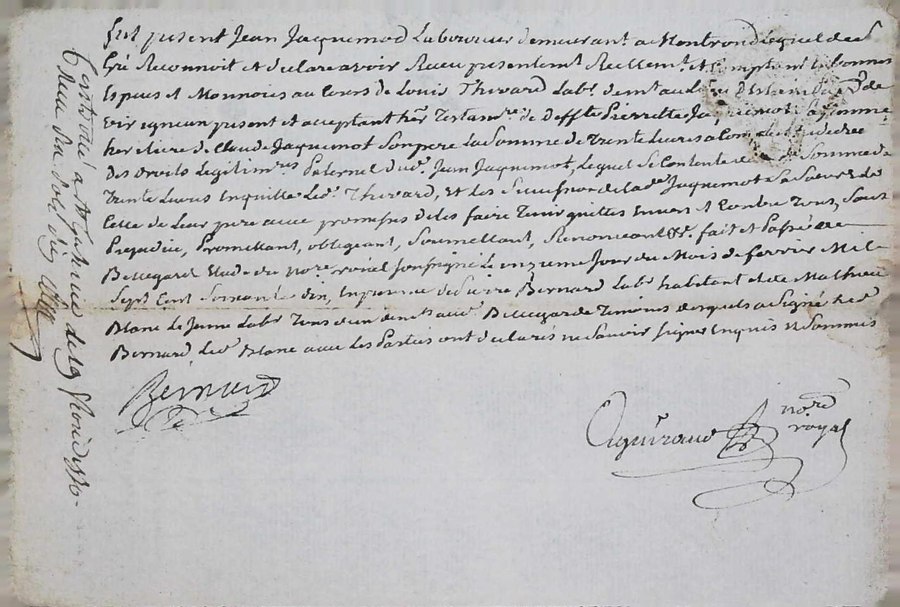 fut present Jean Jaquemod Laboureur demeurant a Montrond lequel de
Gré Reconnoit et declare avoir Receu presentement Reellemt. et Comptant en bonnes
Especes et Monnoies au Cours de Louis Thevard Labr. demt. au
icy present et acceptant her. Testamre. de deffte. Pierrette Jaquemot
heritiere de Claude Jaquemot Son pere La Somme de Trente Livres
des droits Legitimres. Paternel dud. Jean Jaquemot, Lequel Se Contente de Somme de
Trente Livres Enquitte Led. Thevard, et Les Succession de lad. Jaquemot Sa Soeur et
Celle de Leur pere avec promesses de les faire Tenir quittes Envers et Contre Tous, Sous
Prejudice, Promettant, obligeant, Soumettant, Renonceant &c. fait et Passé a
Bellegarde Etude du nore. roial Soussigné Le onzieme Jour du Mois de fevrier Mil
Sept Cent Soixante dix, En presence de Pierre Bernard Labr. habitant et de Mathieu
Blanc Le Jeune Labr. Tous deux demts. aud. Bellegarde Temoins desquels a Signé Led.
Bernard, Led. Blanc avec Les Parties ont declarés ne Savoir Signer Enquis et Sommés
Bernard
Aguiraud nore.
royal
Controllé a St. le 19 fevrier 1770.
Receu Six Sols Six